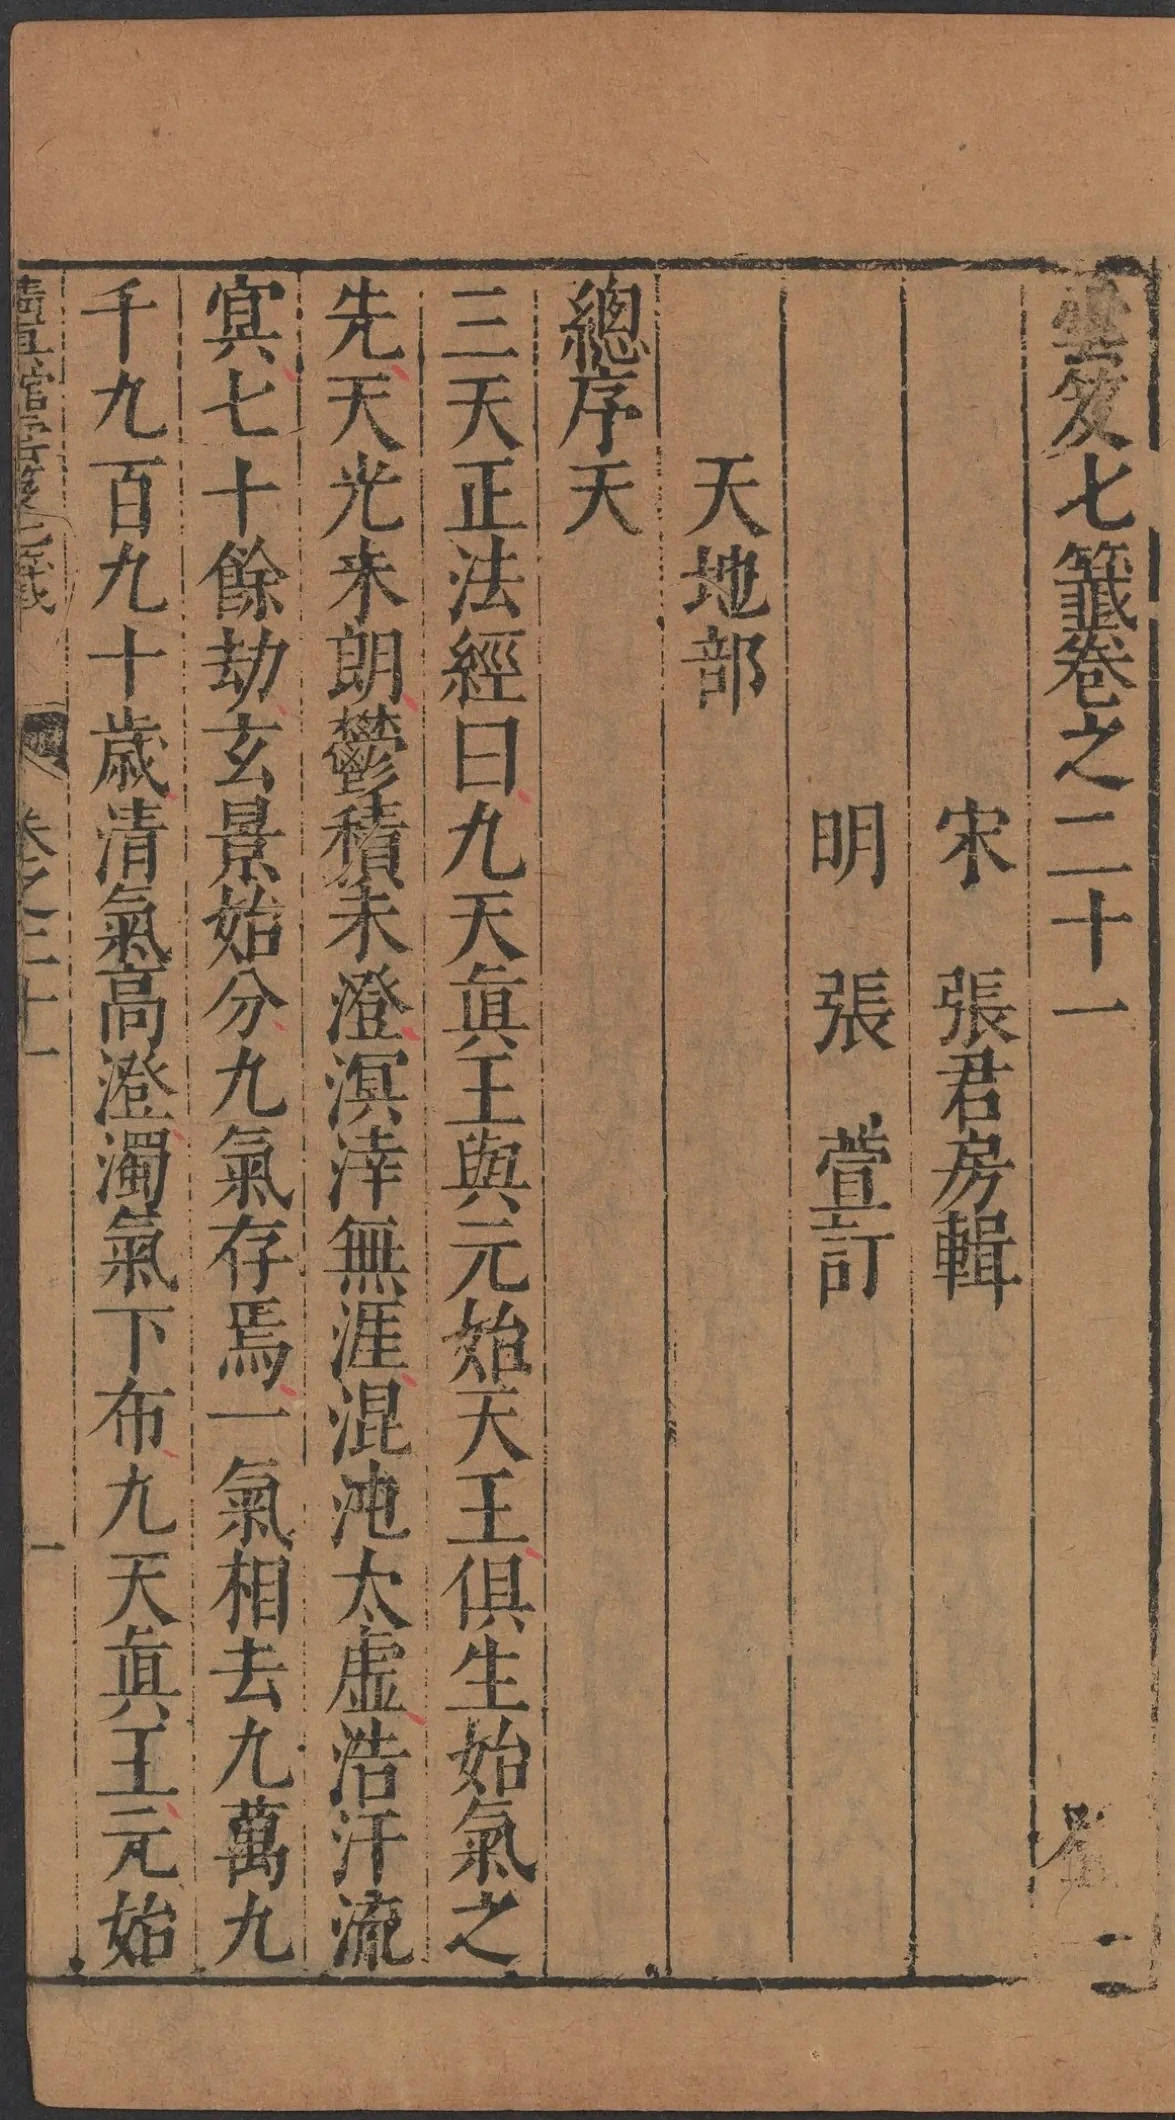 雲笈七籤卷之二十一
宋　張君房輯
明　張　萱訂
天地部
總序天
三天正法經曰九天眞王與元始天王俱生始氣之
先天光未朗鬱積未澄溟涬無涯混沌太虛浩汗流
㝠七十餘劫玄景始分九氣存焉一氣相去九萬九
千九百九十歲清氣高澄濁氣下布九天眞王元始
卷之二十一
一